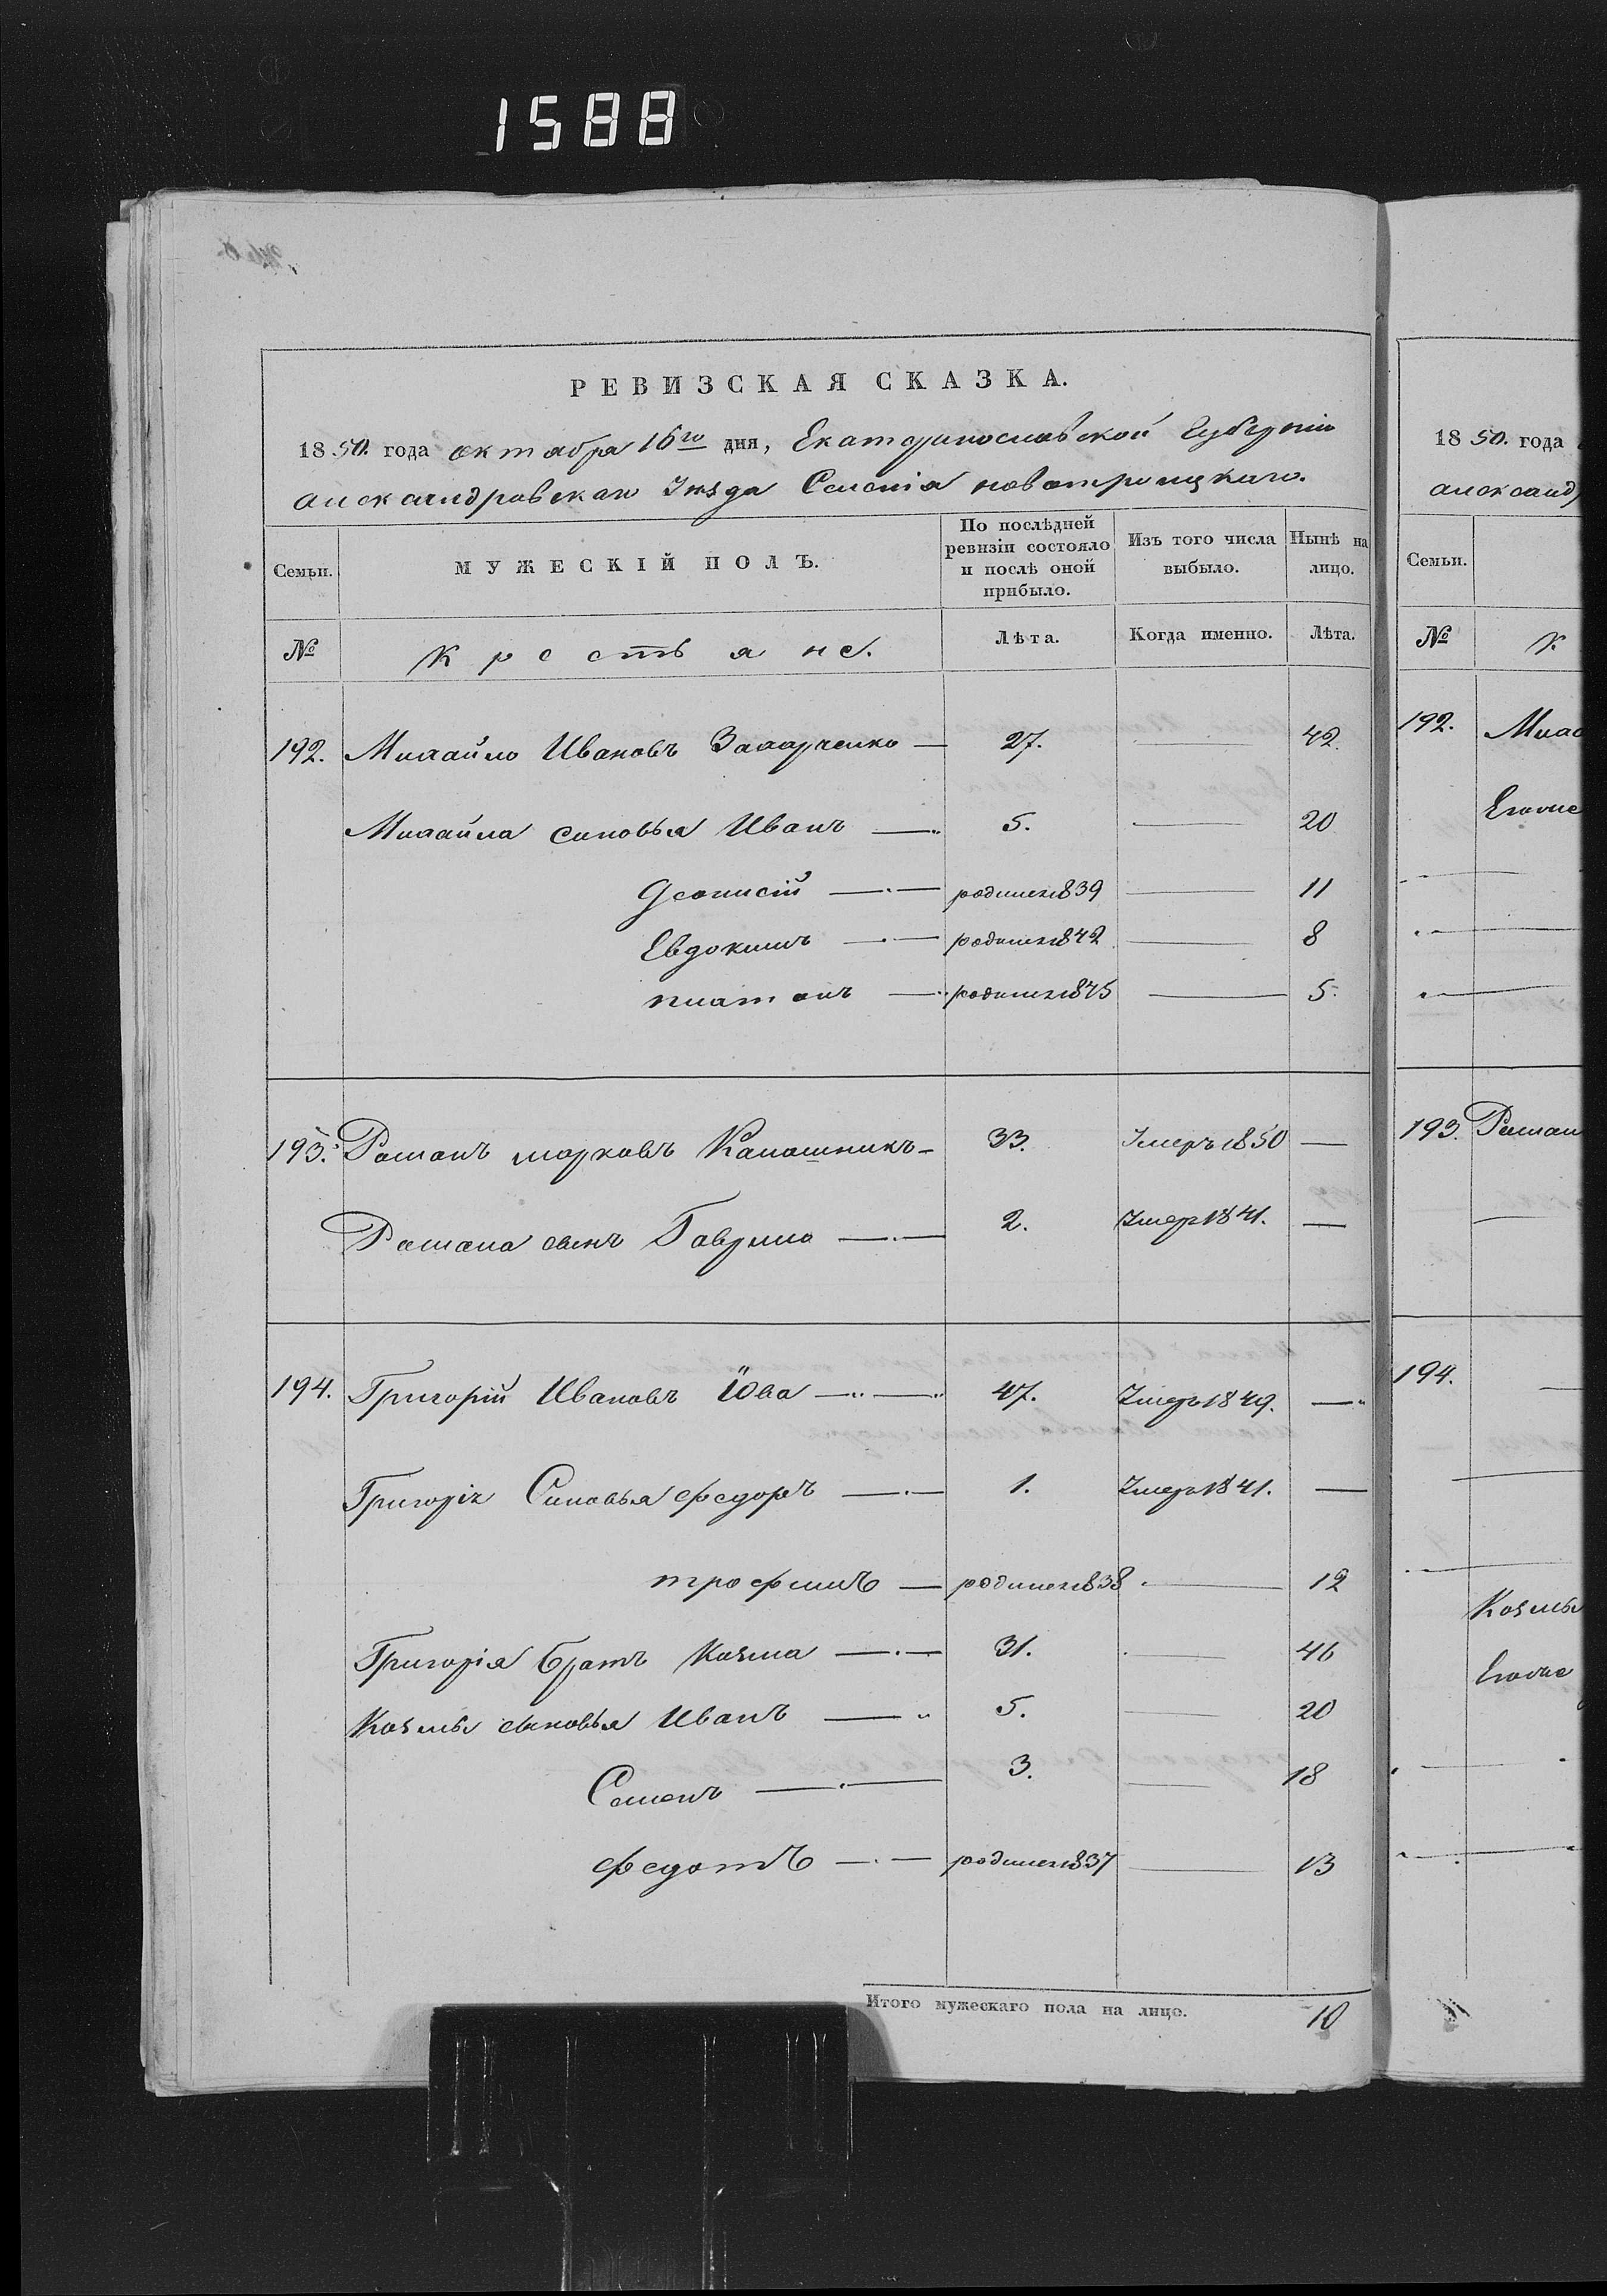 1588
РЕВИЗСКАЯ СКАЗКА.
1850. года октября 16го дня, Екатеринославской Губерніи
александровскаго Уѣзда Селенія новотроицкаго.
Семьи. МУЖЕСКІЙ ПОЛЪ. По послѣдней ревизіи состояло и послѣ оной прибыло. Изъ того числа выбыло. Нынѣ на лицо.
№ Крестьяне. Лѣта. Когда именно. Лѣта.
192. Михайло Ивановъ Захарченко — 27. — 42.
Михайла синовья Иванъ — 5. — 20
Деонисій — родился 1839 — 11
Евдокимъ — родился 1842 — 8
платонъ — родился 1845 — 5.
193. Романъ марковъ Калашникъ — 33. Умеръ 1850 —
Романа сынъ Гаврило — 2. Умеръ 1841. —
194. Григорій Ивановъ Юва — 47. Умеръ 1849. —
Григорія Синовья федоръ — 1. Умеръ 1841. —
трофимъ — родился 1838 — 12
Григорія братъ Козма — 31. — 46
Козмы сыновья Иванъ — 5. — 20
Семенъ — 3. — 18
федотъ — родился 1837 — 13
Итого мужескаго пола на лицо. 10
1850. года
александ
Семьи.
№ К
192.
193. Роман
194.
Козмы